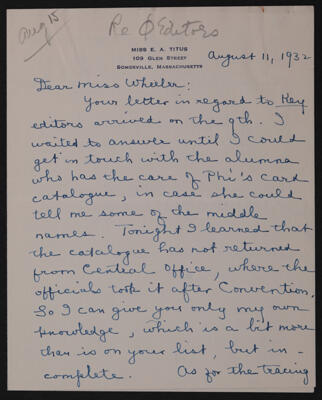 Aug 15
Re Φ Editors
MISS E. A. TITUS
109 GLEN STREET
SOMERVILLE, MASSACHUSETTS
August 11, 1932
Dear Miss Wheeler:
Your letter in regard to Key
editors arrived on the 9th. I
waited to answer until I could
get in touch with the alumna
who has the care of Phi's card
catalogue, in case she could
tell me some of the middle
names. Tonight I learned that
the catalogue has not returned
from Central Office, where the
officials took it after Convention.
So I can give you only my own
knowledge, which is a bit more
than is on your list, but in-
complete. As for the tracing